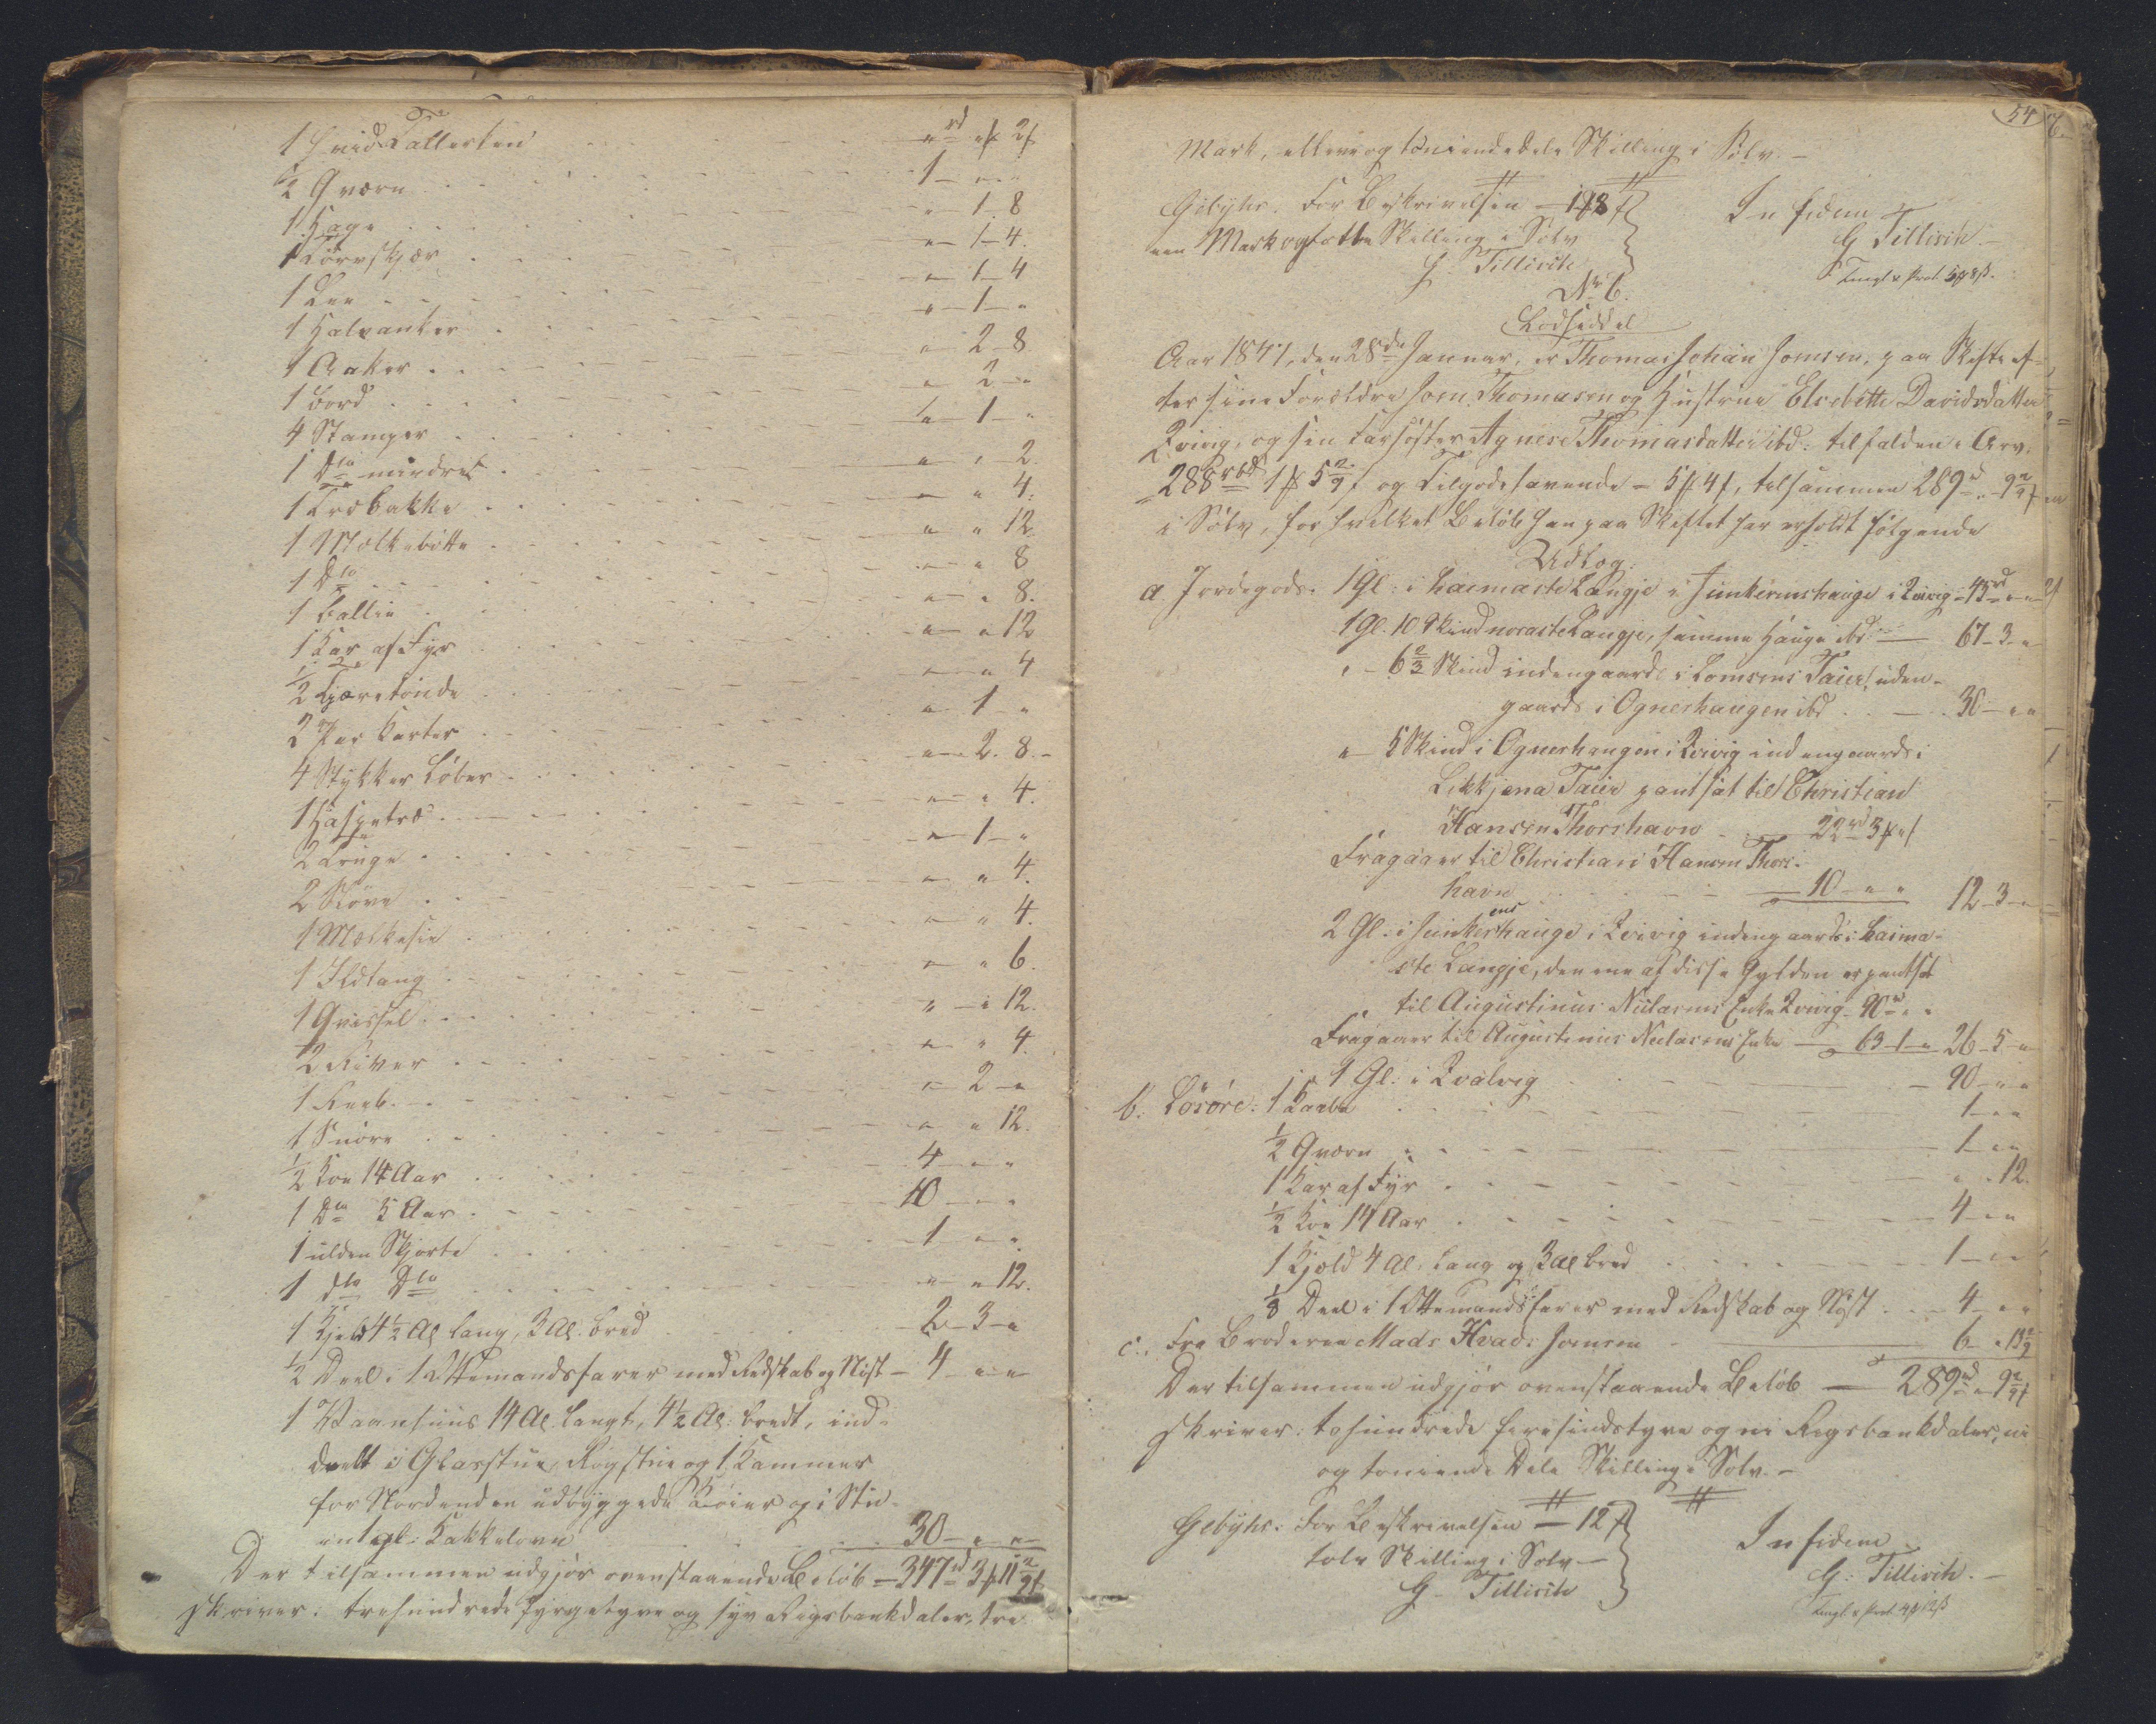 1 hvid Tallerken " rd " ß 2 f
1/2 Qværn 1 - " "
1 Hage " - 1 - 8
1 Törvskjær " - 1 - 4.
1 Lee " - 1 - 4
1 Halvanker " - 1 - "
1 Anker " - 2 - 8
1 Bord " - 2 - "
4 Stamper " - 1 - "
1 Dto mindre " " 2
1 Træbakke " " 4.
1 Mælkebötte " " 12
1 Dto " " 8
1 Ballie " " 8.
1 Kar af Fyr " " 12
1/2 Tjæretönde " " 4
2 Par Karter " 1 - "
4 Stykker Löber " - 2. 8.
1 Haspetræ " " 4.
2 Truge " - 1 - "
2 " " 4.
1 Mælkesie " " 4.
1 Ildtang " " 6.
1 Qvissel " " 12.
2 River " " 4.
1 Reeb " 2 - "
1 Snöre " " 12.
1/2 Koe 14 Aar 4 - " "
1 Do 5 Aar 10 - " "
1 ulden Skjorte 1 " "
1 dto Dto " " 12.
1 Kjeld 4 1/2 Al. lang, 3 Al. bred 2 - 3 - "
1/2 Deel i 1 Ottemandsfarer med Redskab og Nöst - 4 - " "
1 Vaanhuus 14 Al. langt, 4 1/2 Al. bredt, ind-
deelt i Glasstue, Rögstue og 1 Kammer
for Nordenden udbyggede Köier og i Stu-
en 1 gl. Kakkelovn 30 - " "
Der tilsammen udgjör ovenstaaende Belöb = 347 rd 3 ß 11 2/9 f
skriver: trehundrede fyrgetyve og syv Rigsbankdaler, tre
54
Mark, elleve og toniendedele Skilling i Sölv. -
Gebyhr. For Beskrivelsen - 1 ß 8 f
een Mark og otte Skilling i Sölv
G. Tillisch
In fidem
G. Tillisch. -
No 6.
Lodseddel
Aar 1841, den 28de Januar, er Thomas Johan Joensen, paa Skifte ef-
ter sine Forældre Joen Thomasen og Hustrue Elsebeth Davidsdatter
Qvivig, og sin Farsöster Agnese Thomasdatter ibd. tilfalden i Arv.
288 rbd 1 ß 5 2/9 f og Tilgodehavende = 5 ß 4 f, tilsammen 289 rd " - 9 2/9 f
i Sölv, for hvilket Belöb han paa Skiftet har erholdt fölgende
Udlæg.
a. Jordegods. 1 Gl. i haimaste Langje i Junkerenshauge i Qvivig - 45 rd " "
1 Gl. 10 Skind noraste Langje, samme Hauge ibd - 67 - 3 - "
" - 6 2/3 Skind indengaards i Lomsens Taier, uden-
gaards i Ognerhaugen ibd - 30 - " "
" - 5 Skind i Ognerhaugen i Qvivig indengaards i
Likkjena Taier pantsat til Christian
Hansen Thorshavn 22 rd 3 ß " f
Fragaaer til Christian Hansen Thors-
havn 10 - " " 12 - 3 - "
2 Gl. i Junkerenshauge i Qvivig indengaards i haima-
ste Langje, den ene af disse Gylden er pantsat
til Augustinus Niclasens Enke Qvivig 90 rd " "
Fragaaer til Augustinus Niclasens Enke - 63 - 1 - " 26 - 5 - "
1 Gl. i Qvalvig - 90 - " "
b. Lösöre: 1 Kaabe 1 - " "
1/2 Qværn 1 - " "
1 Kar af Fyr " " 12.
1/2 Koe 14 Aar 4 - " "
1 Kjeld 4 Al. lang og 3 Al. bred 1 - " "
1/8 Deel i 1 Ottemandsfarer med Redskab og Nöst 4 - " "
c. Fra Broderen Mads Hvads Joensen 6 " 13 2/9
Der tilsammen udgjör ovenstaaende Belöb - 289 rd " 9 2/9 f
skriver: tohundrede firesindstyve og ni Rigsbankdaler, ni
og toniende Dele Skilling i Sölv. -
Gebyhr. For Beskrivelsen - 12 f
tolv Skilling i Sölv -
G. Tillisch
In fidem
G. Tillisch. -